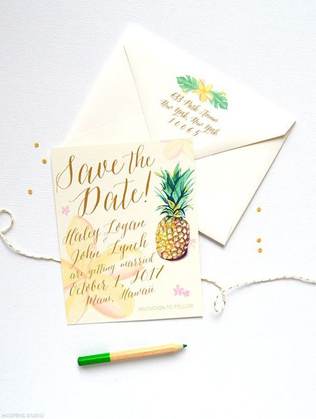 633 Park Avenue
New York, New York
10065
Save the
Date!
Haley Logan
John Lynch
are getting married
October 1, 2017
Maui, Hawaii
INVITATION TO FOLLOW
MOSPENS STUDIO